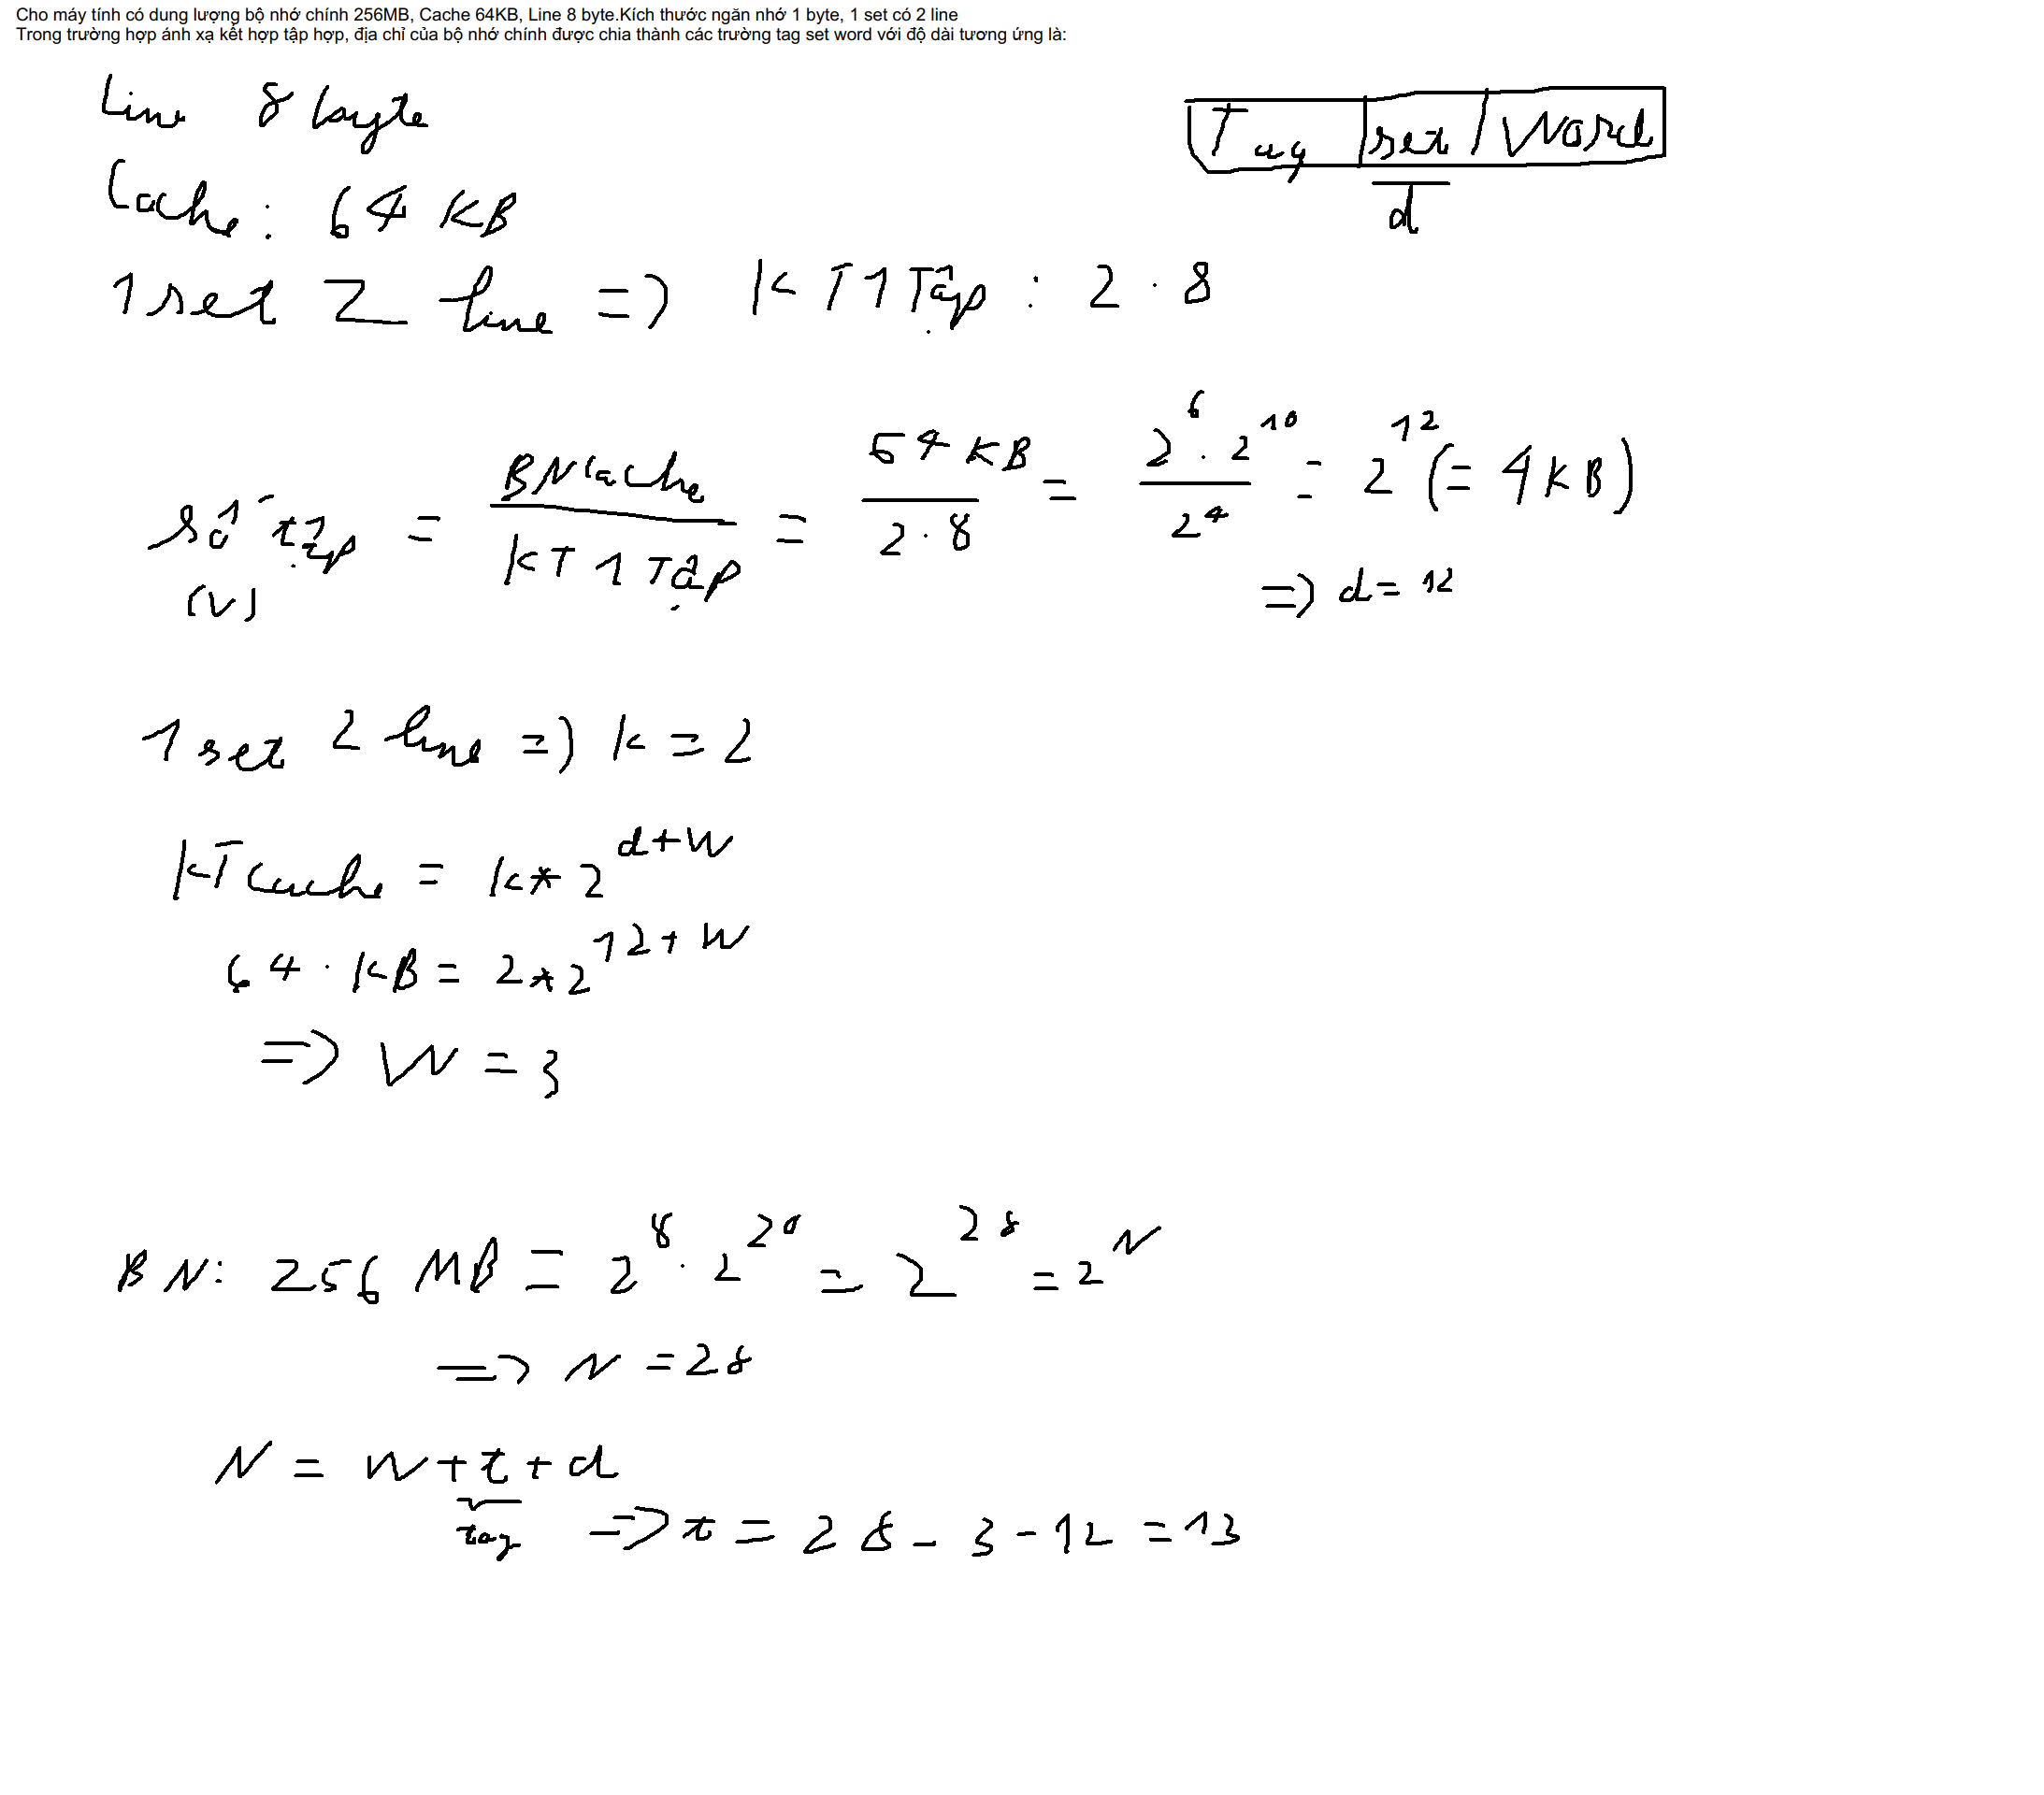 Cho máy tính có dung lượng bộ nhớ chính 256MB, Cache 64KB, Line 8 byte.Kích thước ngăn nhớ 1 byte, 1 set có 2 line
Trong trường hợp ánh xạ kết hợp tập hợp, địa chỉ của bộ nhớ chính được chia thành các trường tag set word với độ dài tương ứng là:
Line 8 byte
Tag | set | Word
d
Cache: 64 KB
1 set 2 line => KT 1 Tập : 2 . 8
số tập (v) = BN cache / KT 1 Tập = 64 KB / 2 . 8 = 2^6 . 2^10 / 2^4 = 2^12 (= 4KB)
=> d = 12
1 set 2 line => k = 2
KT cache = k * 2^(d+W)
64 . KB = 2 * 2^(12+W)
=> W = 3
BN: 256 MB = 2^8 . 2^20 = 2^28 = 2^N
=> N = 28
N = W + t + d
tag => t = 28 - 3 - 12 = 13